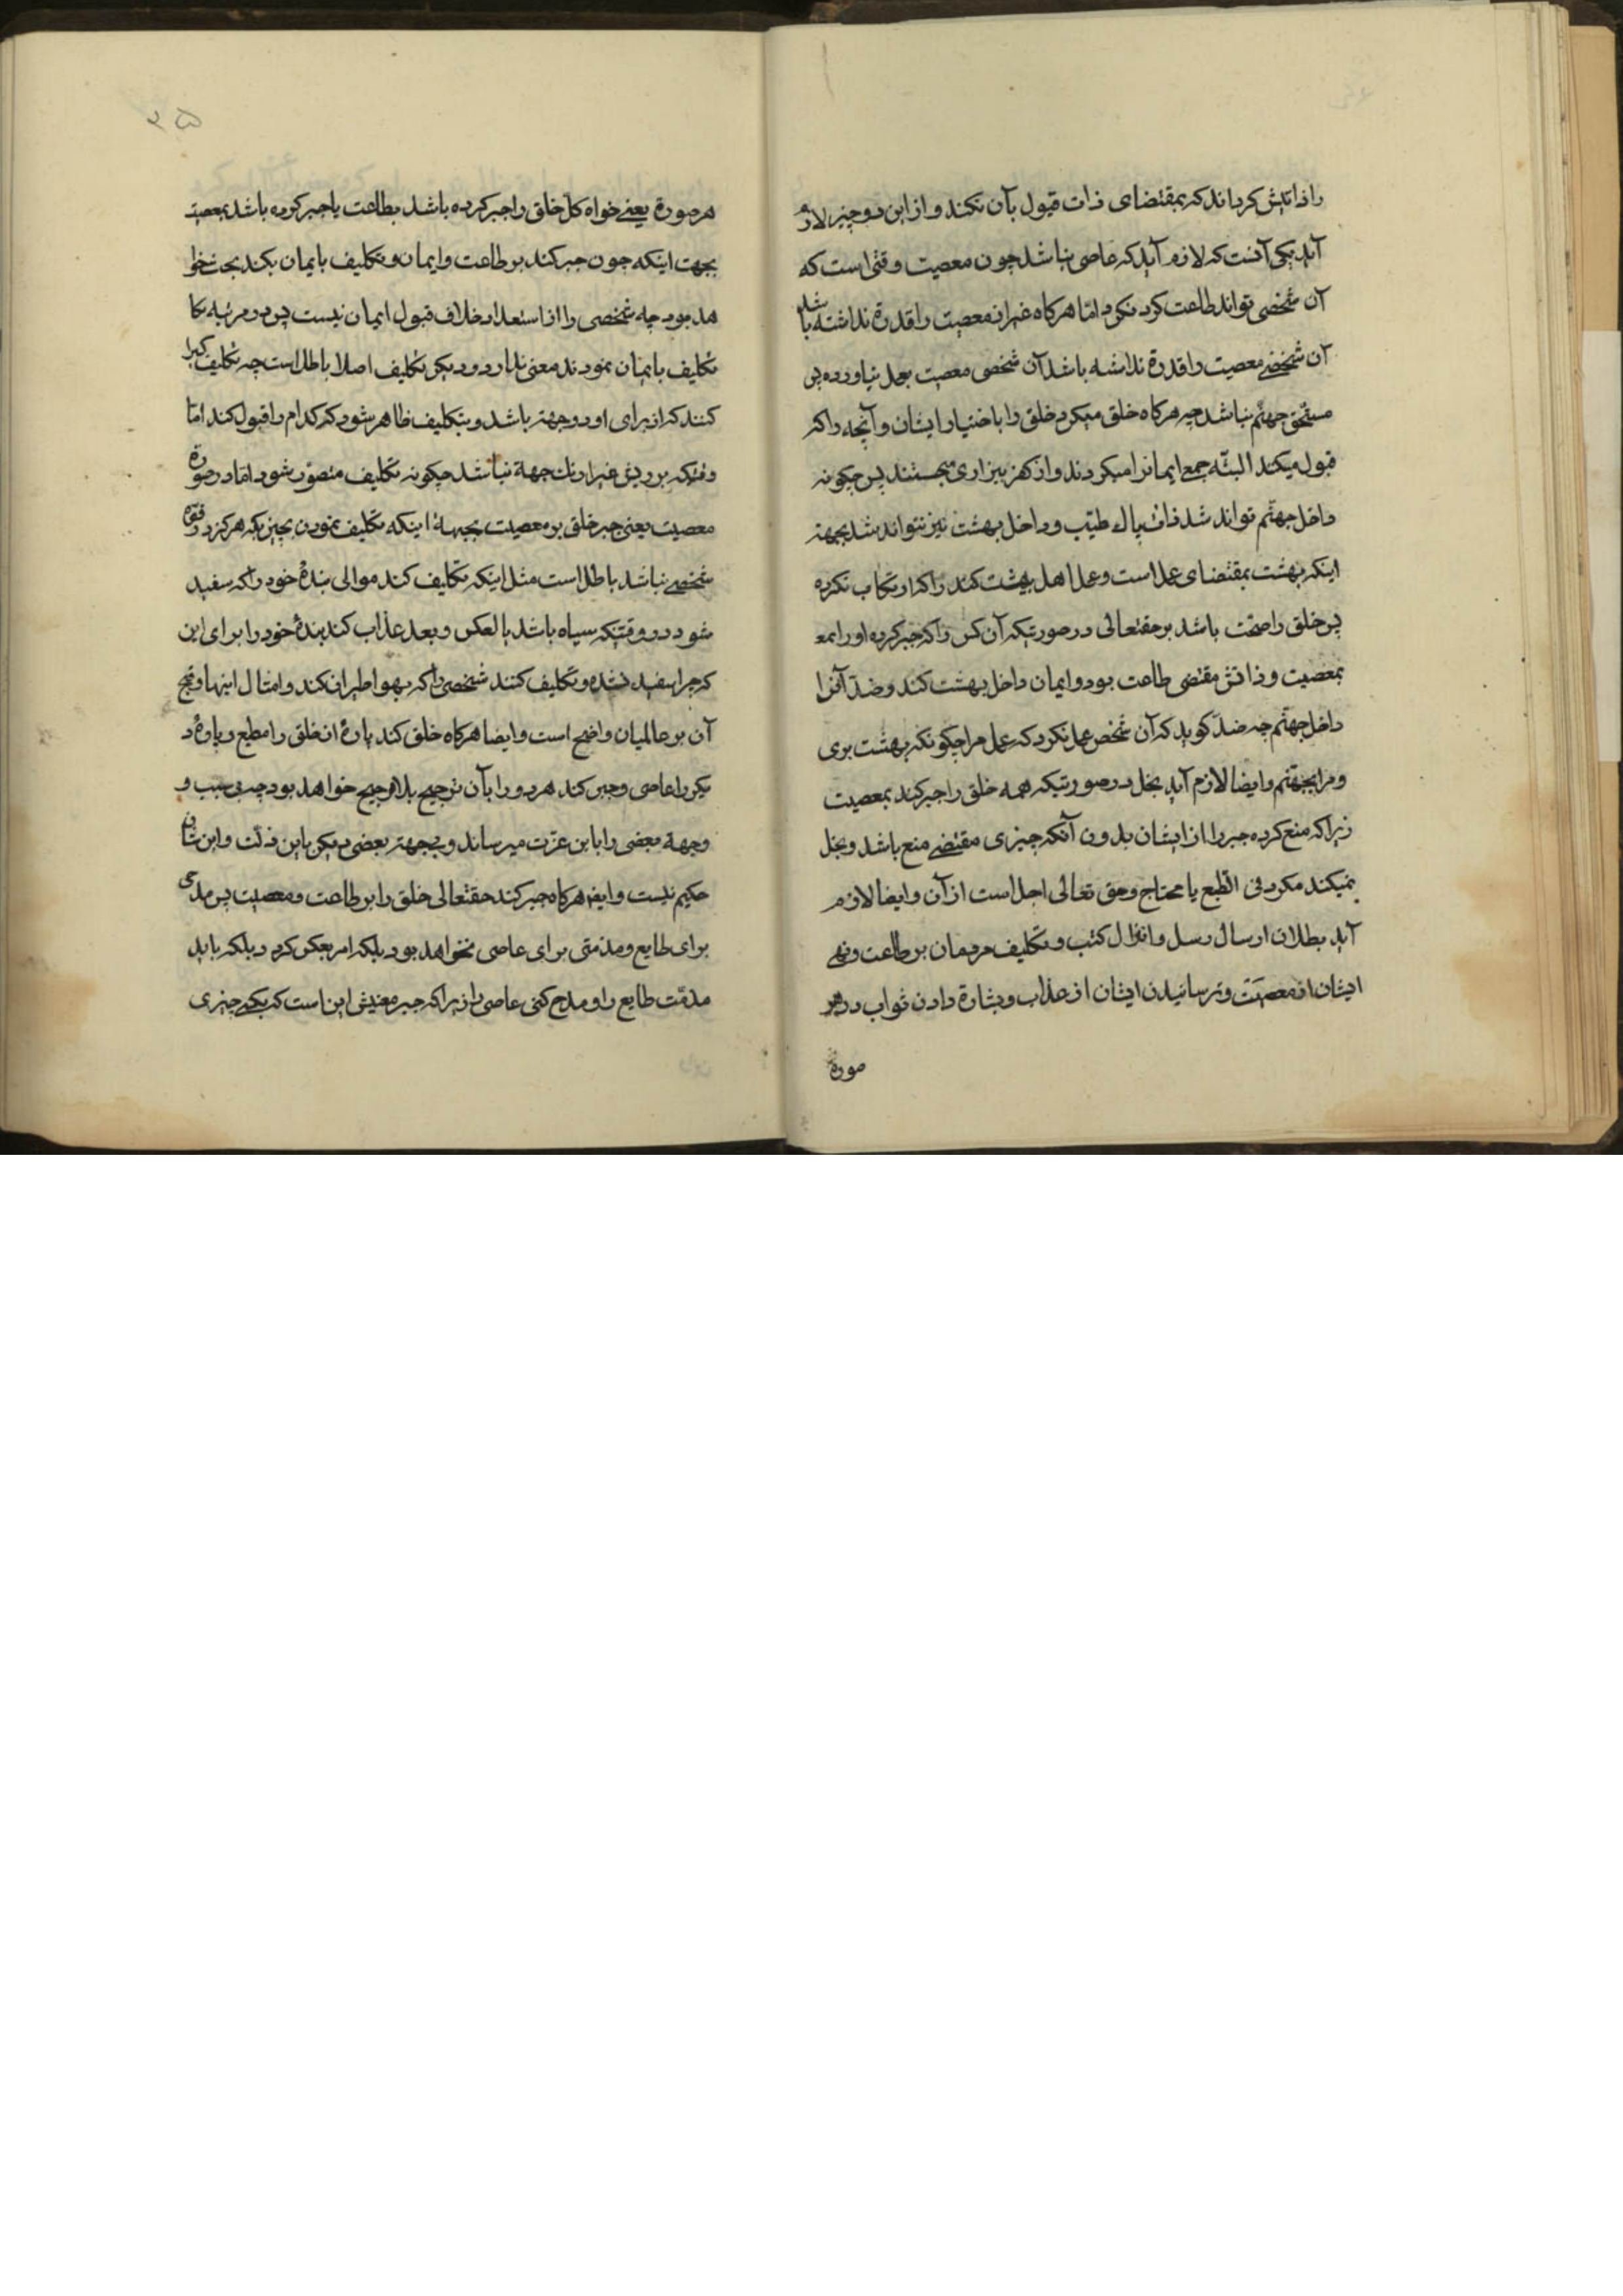 را ذاتش کرداند که بمقتضای ذات قبول بآن نکند و از این دو چیز لازم
آید یکی آنست که لازم آید که عاصی نباشد چون معصیت وقتی است که
آن شخصی تواند طاعت کرد نکرد امّا هرکاه غیر از معصیت را قدرة نداشته باشد
آن شخصے معصیت را قدرة نداشته باشد آن شخصی معصیت بعمل نیاورده پس
مستحق جهنّم نباشد چه هرکاه خلق میکرد خلق را باختیار ایشان و آنچه را که
قبول میکند البتّه جمع ایمانرا میکردند و از کفر بیزاری میجستند پس چکونه
داخل جهنّم تواند شد ذات پاك طیّب و داخل بهشت نیز نتواند شد بجهتہ
اینکه بهشت بمقتضای عمل است و عمل اهل بهشت کند را که ارتکاب نکرده
پس خلق را حجّت باشد بر حقتعالی در صورتیکه آن کس را که جبر کرده او را بمع
بمعصیت و ذاتش مقتضی طاعت بود و ایمان داخل بهشت کند و ضدّ آنرا
داخل جهنّم چه ضدّ کوید که آن شخص عمل نکرد که عمل مرا چکونکه بهشت بری
و مرا بجهنّم و ایضا لازم آید بخل در صورتیکه همه خلق را جبر کند بمعصیت
زیرا که منع کرده جبر را از ایشان بدون آنکه چیزی مقتضے منع باشد و بخل
نمیکند مکر دنی الطبع یا محتاج و حق تعالی اجل است از آن و ایضا لازم
آید بطلان ارسال رسل و انزال کتب و تکلیف مردمان بر طاعت و نهے
ایشان از معصیت و ترسانیدن ایشان از عذاب و بشارة دادن ثواب در هر
صورة
۲۵
هر صورة یعنے خواه کل خلق را جبر کرده باشد بطاعت یا جبر کرده باشد بمعصیت
بجهت اینکه چون جبر کند بر طاعت و ایمان و تکلیف بایمان بکند بحت خوا
هد بود چه شخصی را از استعداد خلاف قبول ایمان نیست پس دو مرتبه تکا
تکلیف بایمان نمودند معنی ندارد و دیکر تکلیف اصلا باطل است چه تکلیف کسیرا
کنند که از برای او دو جهتہ باشد و بتکلیف ظاهر شود که کدام را قبول کند امّا
وقتیکه بر ریق غیر از یك جهة نباشد چکونه تکلیف متصوّر شود امّا در صورة
معصیت یعنی جبر خلق بر معصیت بجهة اینکه تکلیف نمودن بچیزیکه هرکز در قوّه
شخصے نباشد باطل است مثل اینکه تکلیف کند موالی بندۀ خود را که سفید
شود در وقتیکه سیاه باشد بالعکس و بعد عذاب کند بندۀ خود را برای این
که چرا سفید نشده و تکلیف کنند شخصی را که بهوا طیران کند و امثال اینها و قبح
آن بر عالمیان واضح است و ایضا هرکاه خلق کند پارۀ از خلق را مطیع و پارۀ د
یکر را عاصی و جبر کند هر دو را بآن ترجیح بلا مرجّح خواهد بود چه بی سبب و
وجهة بعضی را باین عزت میرساند و بیجهتہ بعضی دیکر باین ذلت و این شان
حکیم نیست و ایضا هرکاه جبر کند حقتعالی خلق را بر طاعت و معصیت پس مدحی
برای طایع و مذمّتی برای عاصی نخواهد بود بلکه امر بعکس کردد بلکه باید
مذمّت طایع را و مدح کنی عاصی را زیرا که جبر معنیش این است که یکے چیزی